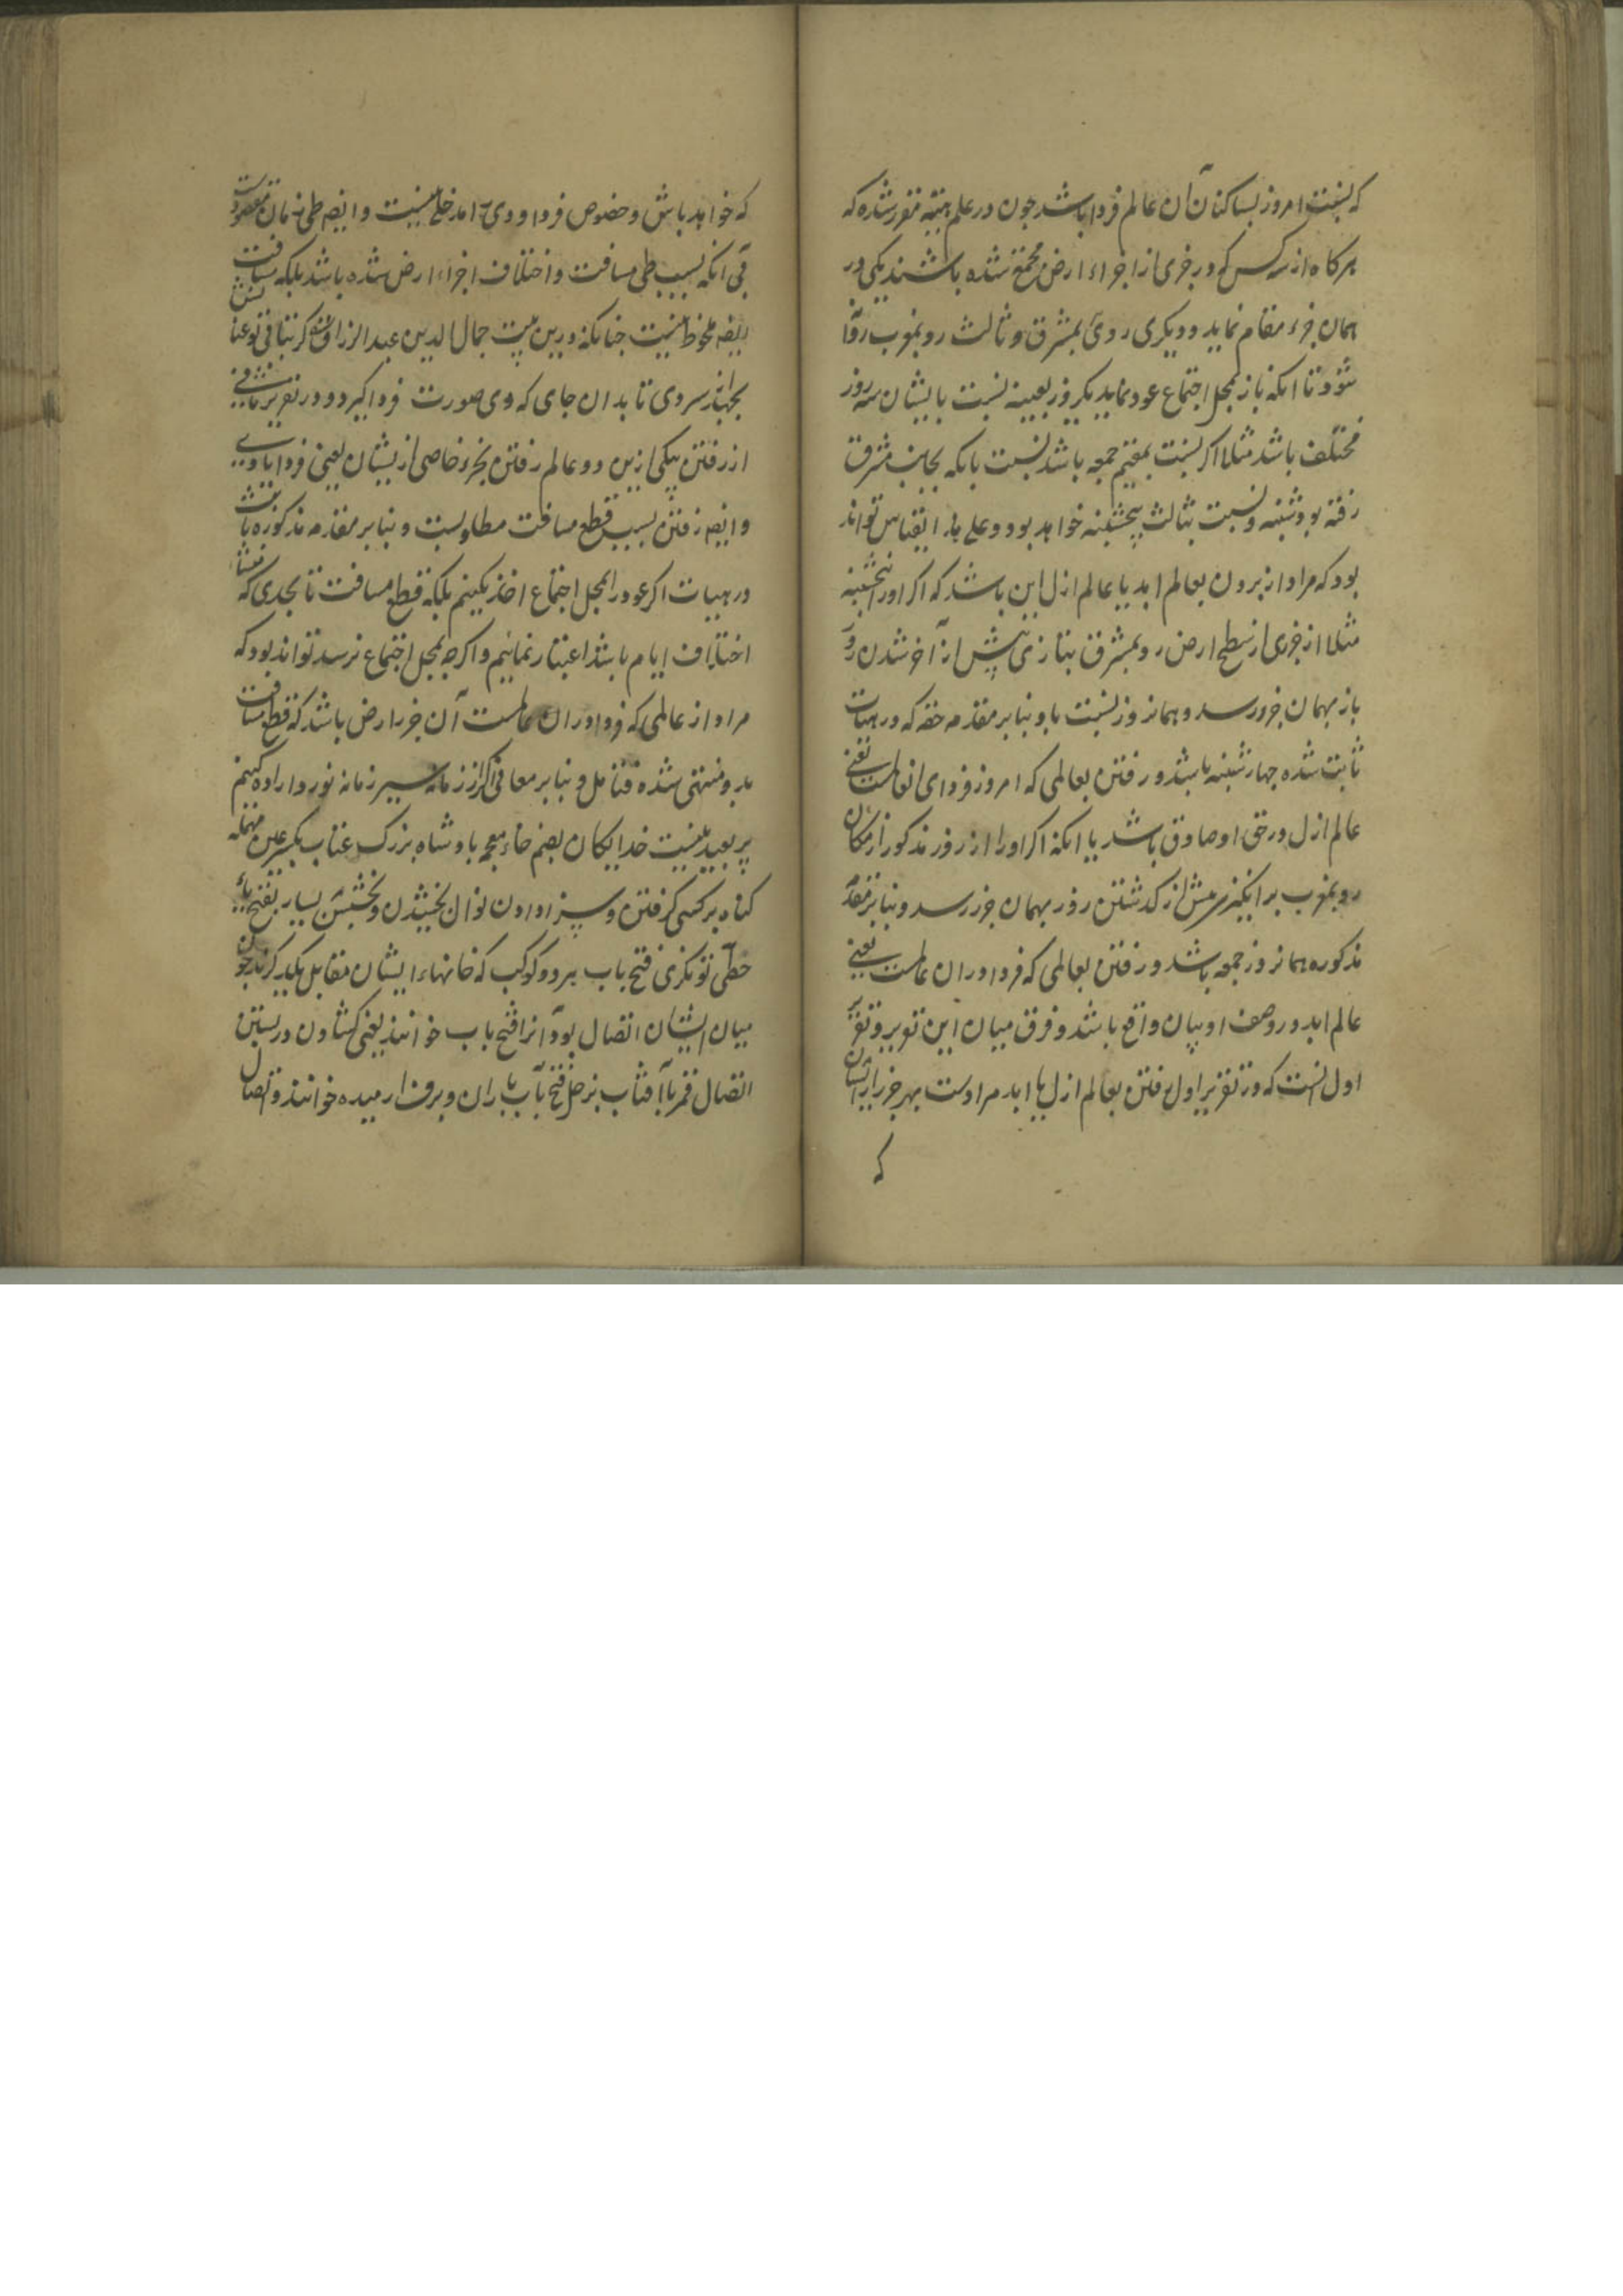 که نسبت امروز بساکنان آن عالم فردا باشد چون در علم هیئه مقرر شده که
هرکاه از سه کس که در جزی از اجزاء ارض مجتمع شده باشند یکی در
همان جزء مقام نماید و دیکری روی بمشرق و ثالث رو بمغرب روان
شود تا انکه باز بمحل اجتماع عود نماید یکروز بعینه نسبت بایشان سه روز
مختلف باشد مثلا اکر نسبت بمقیم جمعه باشد نسبت بانکه بجانب مشرق
رفته بود شنبه و نسبت بثالث پنجشنبه خواهد بود و علی هذا القیاس تواند
بود که مراد از بردن بعالم ابد یا عالم ازل این باشد که اکر او را پنجشنبه
مثلا از جزی از سطح ارض رو بمشرق بتازی پیش از آخر شدن روز
باز بهمان جزو رسد و همانروز نسبت باو بنا بر مقدمه حقه که در هیات
ثابت شده چهارشنبه باشد و رفتن بعالمی که امروز فردای انعالمست یعنی
عالم ازل در حق او صادق باشد یا انکه اکر او را از روز مذکور از مکان
رو بمغرب برانکیزی پیش از کذشتن روز بهمان جزو رسد و بنا بر مقدمه
مذکوره همانروز جمعه باشد و رفتن بعالمی که فردا دران عالمست یعنی
عالم ابد در وصف او بیان واقع باشد و فرق میان این تقریر و تقریر
اول انست که در تقریر اول رفتن بعالم ازل یا ابد مراد است بهر جزء از ایشان
که
که خواهد باش و خصوص فردا و دی را مدخلی نیست و ایضا طی زمان مقصود است
بی انکه بسبب طی مسافت و اختلاف اجزاء ارض شده باشد بلکه مسافت
ایضا ملحوظ نیست چنانکه درین بیت جمال الدین عبد الرزاق کر نتابی تو عنان
بجهانرسدی تا بدان جای که دی صورت فردا کیرد و در تقریر ثانی
از رفتن بیکی ازین دو عالم رفتن بجزء خاصی از یشان یعنی فردا یا دی
و ایضا رفتن بسبب قطع مسافت مطلوبست و بنا بر مقدمه مذکوره
در هیات اکر عود را بمحل اجتماع اخذ نکنیم بلکه قطع مسافت تا بحدی که منشا
اختلاف ایام باشد اعتبار نمائیم و اکرچه بمحل اجتماع نرسد تواند بود که
مراد از عالمی که فردا دران عالمست آن جزء ارض باشد که قطع مسافت
بدو منتهی شده فتامل و بنا بر معانی اکر از زمانه سیر زمانه نوردا راده کنیم
پر بعید نیست خدایکان بضم خاء معجمه پادشاه بزرک عتاب بکسر عین مهمله
کناه بر کسی کرفتن و سزا دادن نوال بخشیدن و بخشش یسار بفتح یاء
حطی تونکری فتح باب هر دو کوکب که خانهاء ایشان مقابل یکدیکرند چون
میان ایشان اتصال بود آنرا فتح باب خوانند یعنی کشادن در پس
اتصال قمر یا آفتاب بزحل فتح باب باران و برف ارمیده خوانند و اتصال